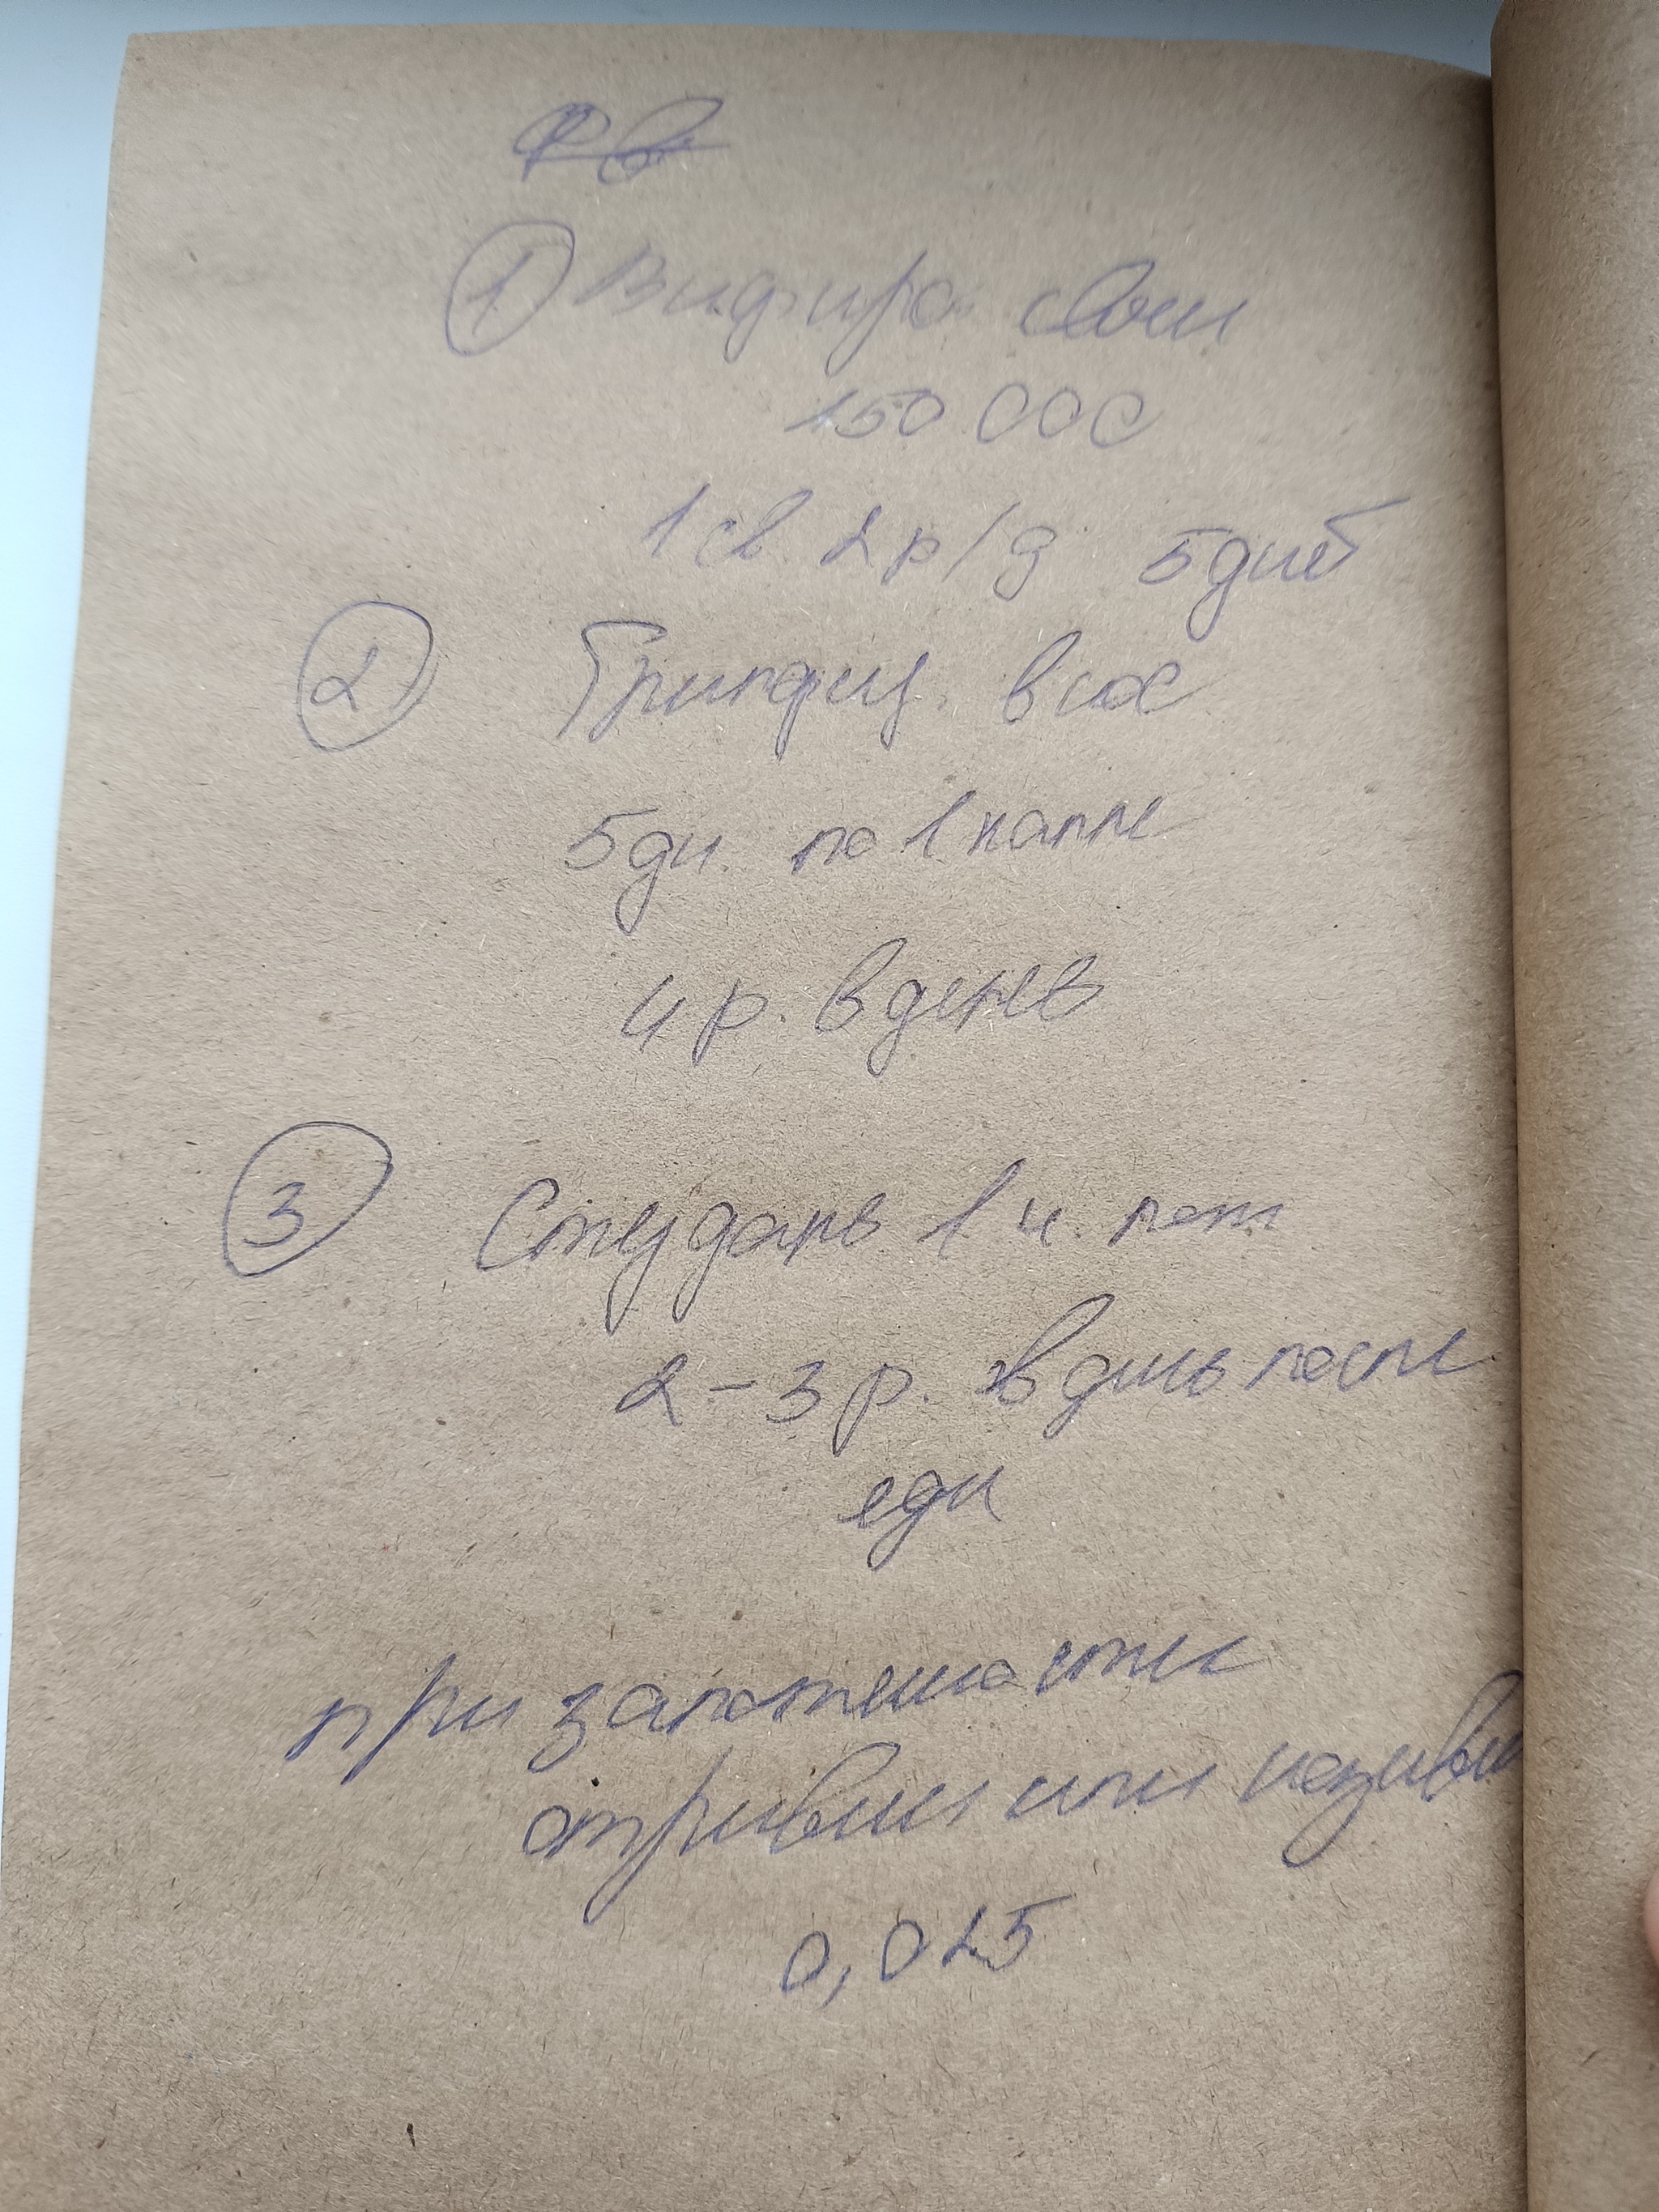 ① Вифира свеи
150 000
1 св 2 р/д 5 дней
② Грипфер. в нос
5 дн. по 1 капле
4 р. в день
③ Стодаль 1 ч. лож
2-3 р. в день после
еды
при заложенности
отривин или називин
0,025